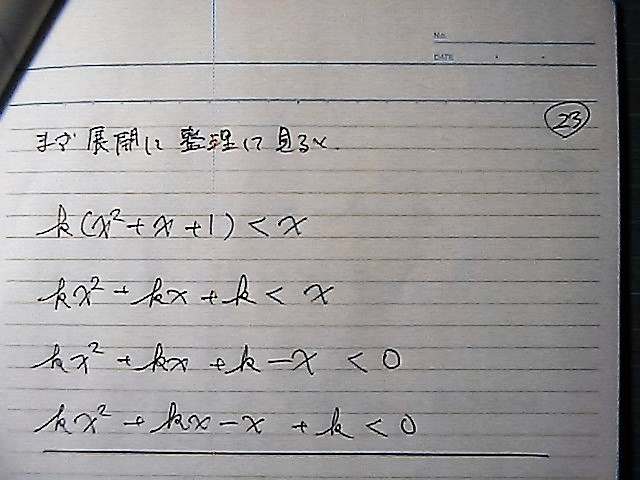 No.
DATE
23
まず展開して整理して見ると.
k(x²+x+1)<x
kx²+kx+k<x
kx²+kx+k-x<0
kx²+kx-x+k<0